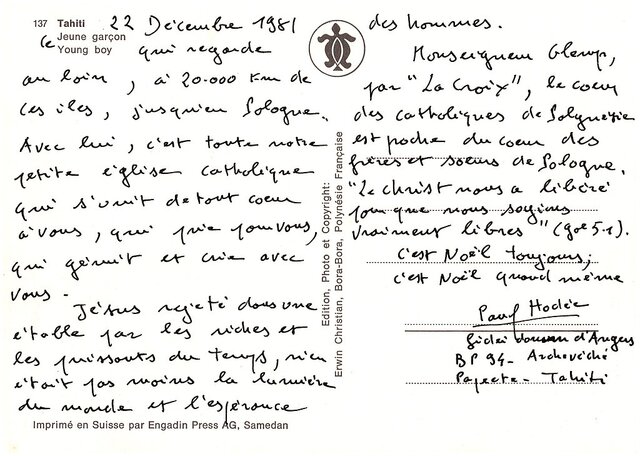 137 Tahiti 22 Décembre 1981
Jeune garçon
Young boy
le qui regarde
au loin, à 20.000 km de
ces iles, jusqu'en Pologne.
Avec lui, c'est toute notre
petite église catholique
qui s'unit de tout coeur
à vous, qui prie pour vous,
qui gémit et crie avec
vous.
Jésus rejeté dans une
étable par les riches et
les puissants du temps, n'en
était pas moins la lumière
du monde et l'espérance
Imprimé en Suisse par Engadin Press AG, Samedan
Edition, Photo et Copyright:
Erwin Christian, Bora-Bora, Polynésie Française
des hommes.
Monseigneur Glemp,
par "La Croix", le coeur
des catholiques de Polynésie
est proche du coeur des
frères et soeurs de Pologne.
"Le Christ nous a libéré
pour que nous soyions
vraiment libres" (gal 5.1).
C'est Noël toujours;
c'est Noël quand même
Paul Hodée
d'Angers
BP 94 - Archevêché
Papeete - Tahiti